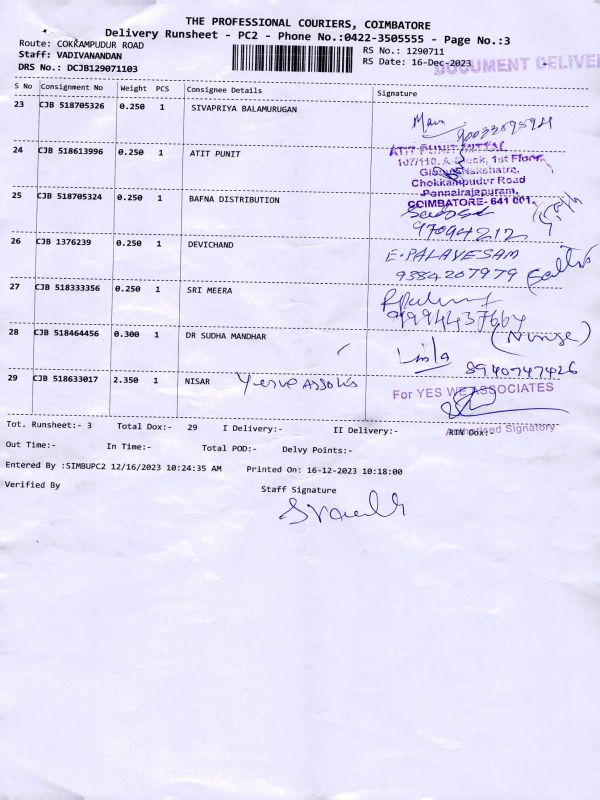 THE PROFESSIONAL COURIERS, COIMBATORE
Delivery Runsheet - PC2 - Phone No.:0422-3505555 - Page No.:3
Route: COKKAMPUDUR ROAD
RS No.: 1290711
Staff: VADIVANANDAN
RS Date: 16-Dec-2023
DOCUMENT DELIVER
DRS No.: DCJB129071103
S No Consignment No Weight PCS Consignee Details Signature
23 CJB 518705326 0.250 1 SIVAPRIYA BALAMURUGAN
24 CJB 518613996 0.250 1 ATIT PUNIT
ATIT PUNIT MITTAL
107/110, A-Block, 1st Floor,
Chokkampudur Road
Ponnairajapuram,
COIMBATORE- 641 001.
25 CJB 518705324 0.250 1 BAFNA DISTRIBUTION
26 CJB 1376239 0.250 1 DEVICHAND
E. PALAYESAM
9384207979
27 CJB 518333356 0.250 1 SRI MEERA
28 CJB 518464456 0.300 1 DR SUDHA MANDHAR
(Nurse)
8940747426
29 CJB 518633017 2.350 1 NISAR
For YES WE ASSOCIATES
Authorised Signatory
Tot. Runsheet:- 3 Total Dox:- 29 I Delivery:- II Delivery:- RTN Dox:-
Out Time:- In Time:- Total POD:- Delvy Points:-
Entered By :SIMBUPC2 12/16/2023 10:24:35 AM Printed On: 16-12-2023 10:18:00
Verified By Staff Signature